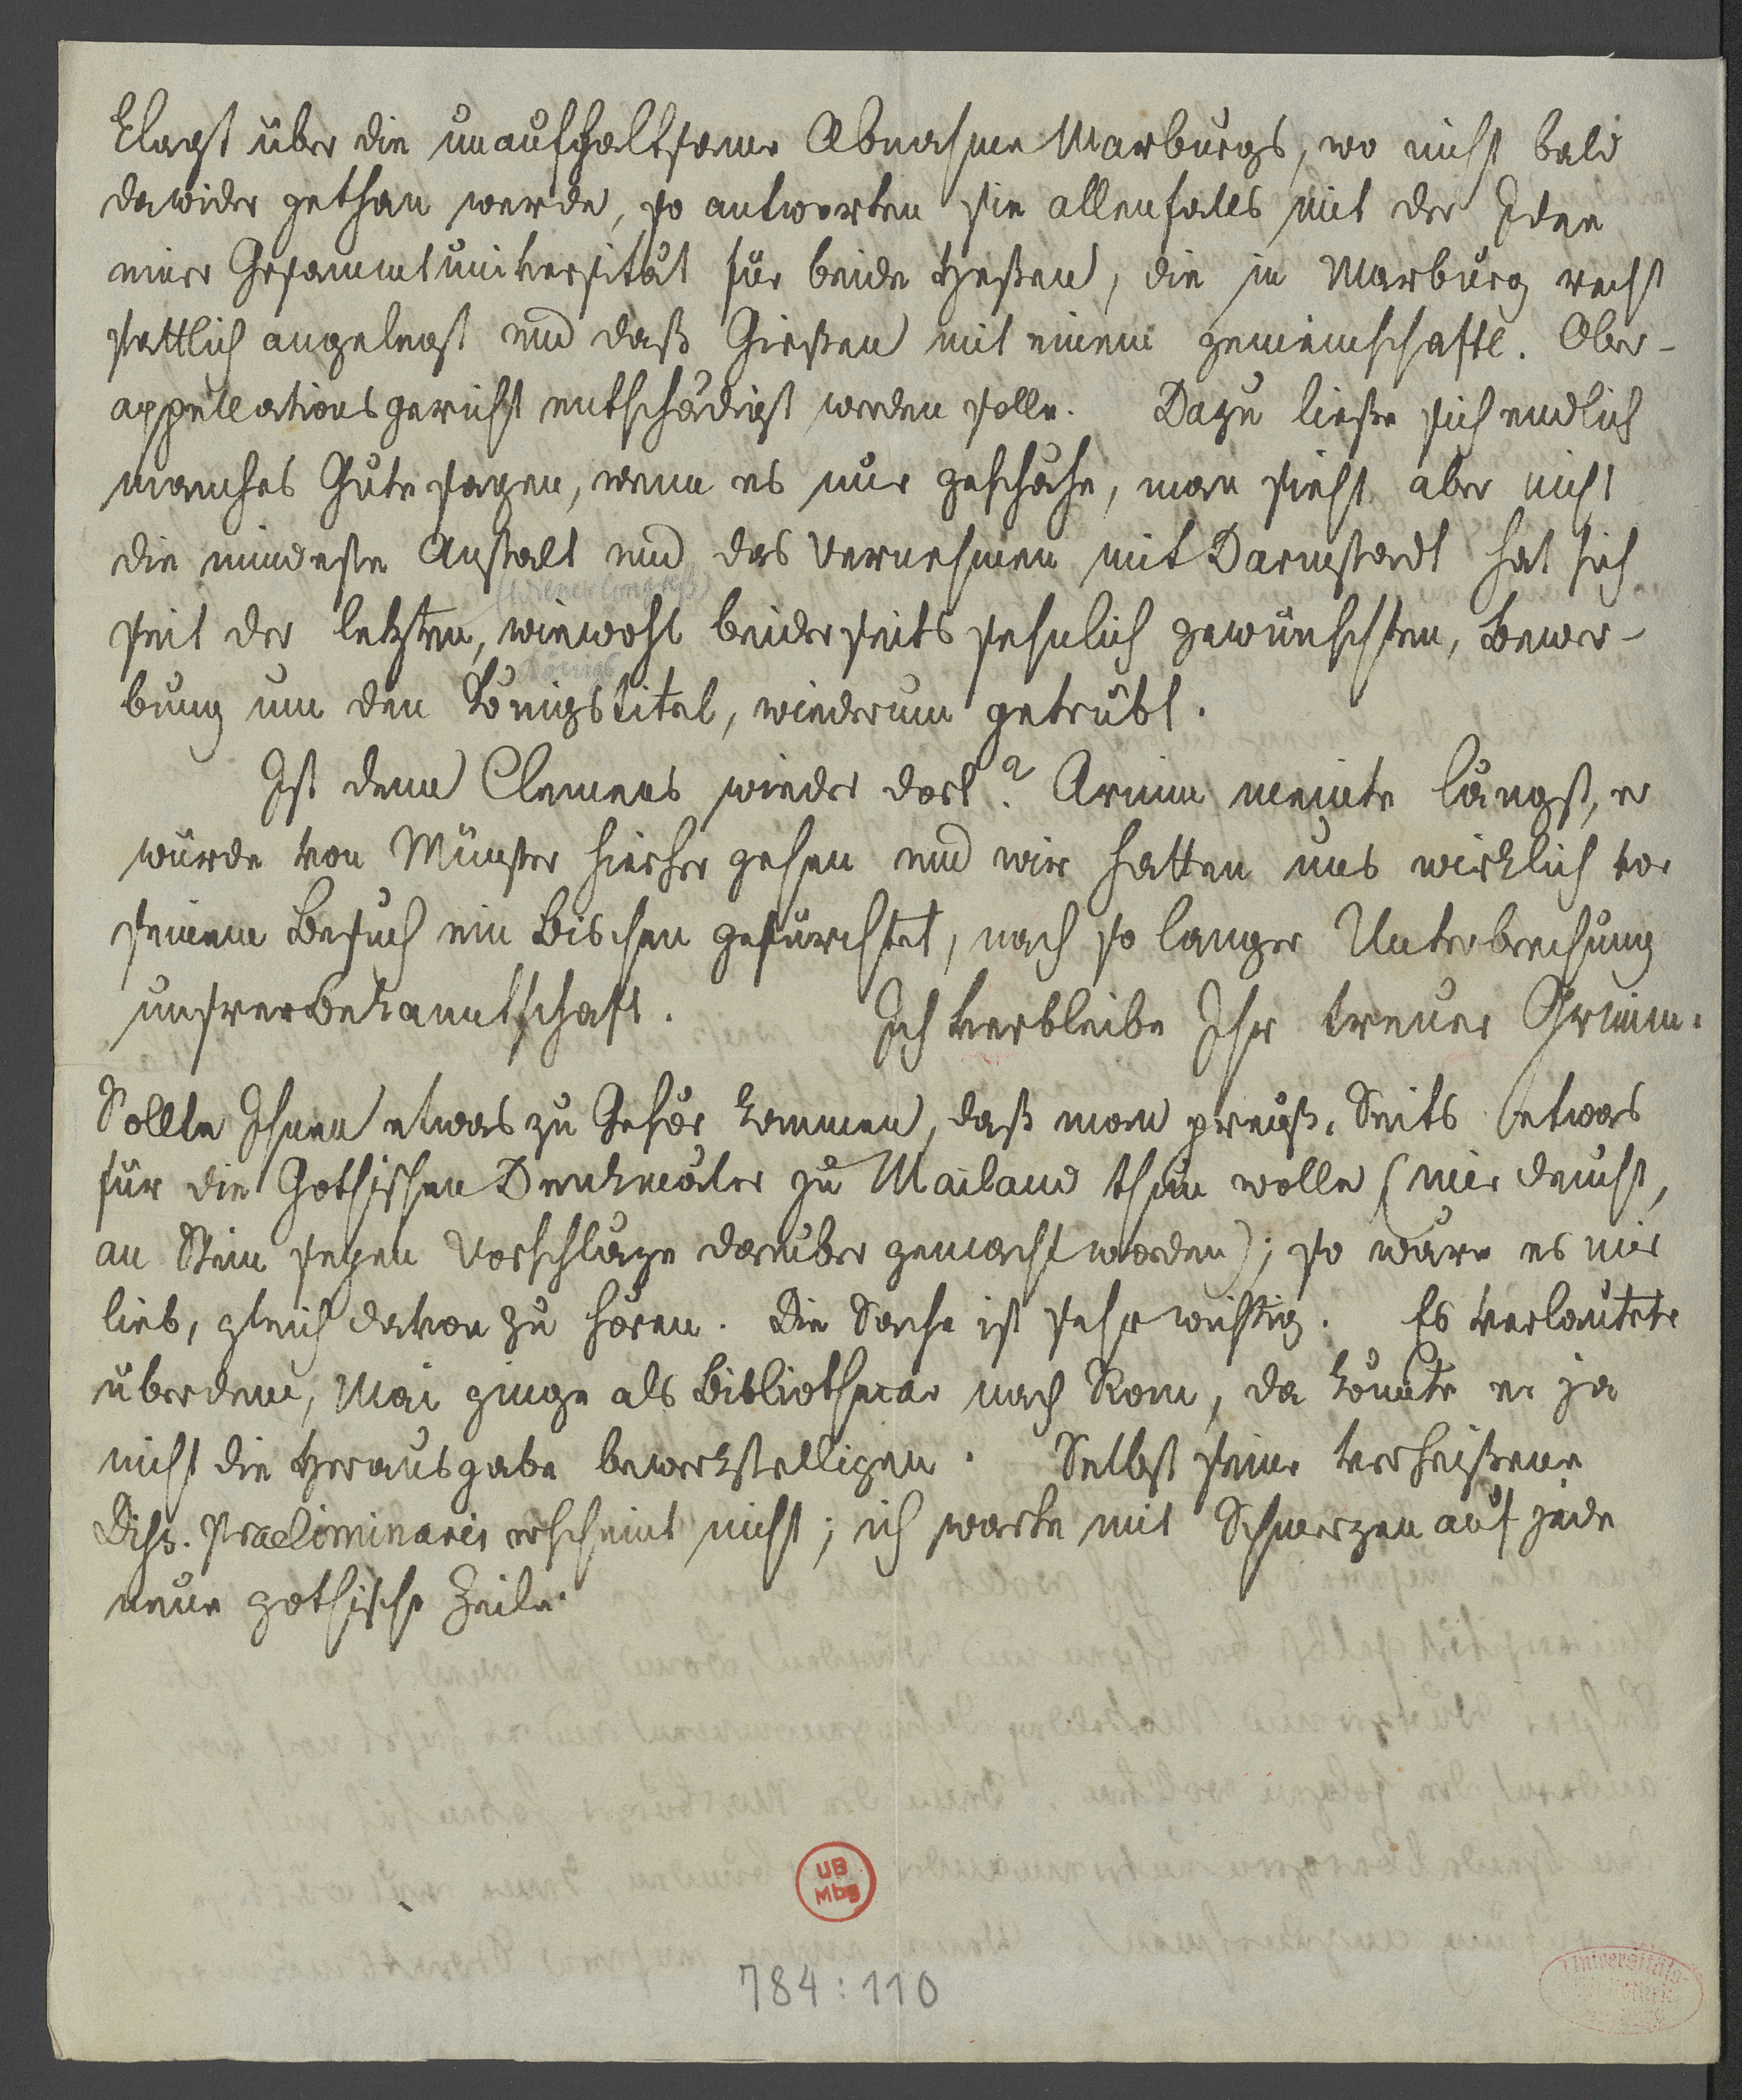 klagt über die unaufhaltsame Abnahme Marburgs, wo nicht bald
dawider gethan werde, so antworten sie allenfalls mit der Idee
einer Gesammtuniversität für beide Heßen, die in Marburg recht
stattlich angelegt und daß Gießen mit einem gemeinschaftl. Ober-
appellationsgericht entschädigt werden solle. Dazu ließe sich endlich
manches Gute sagen, wenn es nur geschähe, man sieht aber nicht
die mindeste Anstalt und das Vernehmen mit Darmstadt hat sich
(Wiener Congreß)
seit der letzten, wiewohl beiderseits sehnlich gewünschten, Bewer-
Königs
bung um den Königstitel, wiederum getrübt.
Ist denn Clemens wieder dort? Arnim meinte längst, er
würde von Münster hierher gehen und wir hatten uns wirklich vor
seinem Besuch ein Bischen gefürchtet, nach so langer Unterbrechung
unsrer Bekanntschaft. Ich verbleibe Ihr treuer Grimm.
Sollte Ihnen etwas zu Gehör kommen, daß man preuß. Seits etwas
für die Gothischen Denkmäler zu Mailand thun wolle (mir deucht,
an Stein seyen Vorschläge darüber gemacht worden); so wäre es mir
lieb, gleich davon zu hören. Die Sache ist sehr wichtig. Es verlautete
überdem, Mai ginge als Bibliothecar nach Rom, da könnte er ja
nicht die Herausgabe bewerkstelligen. Selbst seine verheißene
Diss. Praeliminaris erscheint nicht; ich warte mit Schmerzen auf jede
neue gothische Zeile.
UB
Mbg
784:110
Universitäts-